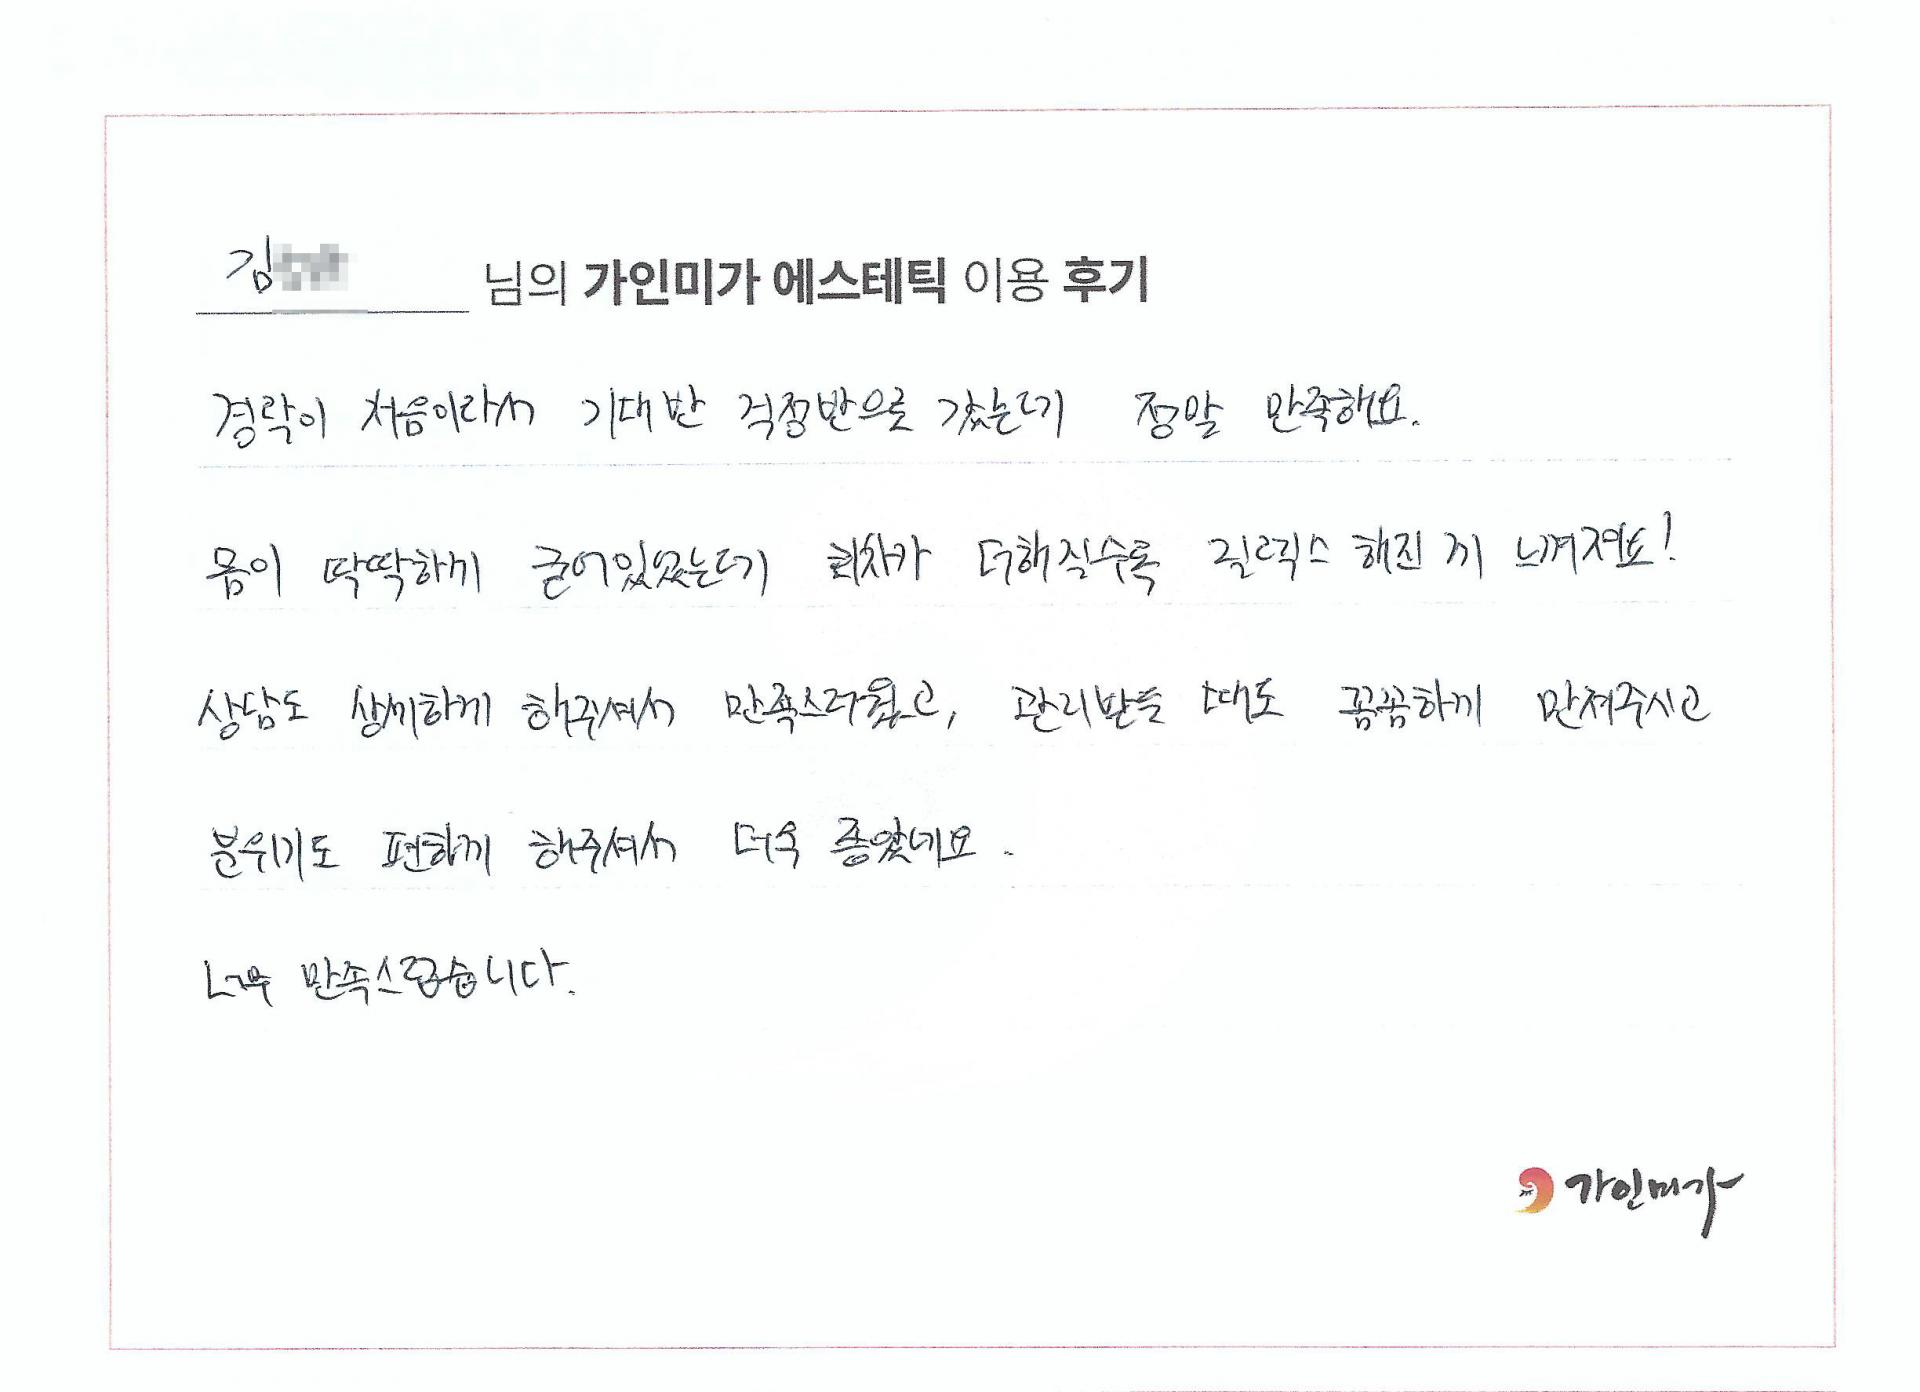 김 님의 가인미가 에스테틱 이용 후기
경락이 처음이라서 기대반 걱정반으로 갔는데 정말 만족해요.
몸이 딱딱하게 굳어있었는데 회차가 더해질수록 릴렉스 해진 게 느껴져요!
상담도 상세하게 해주셔서 만족스러웠고, 관리받을 때도 꼼꼼하게 만져주시고
분위기도 편하게 해주셔서 더욱 좋았네요.
너무 만족스럽습니다.
가인미가